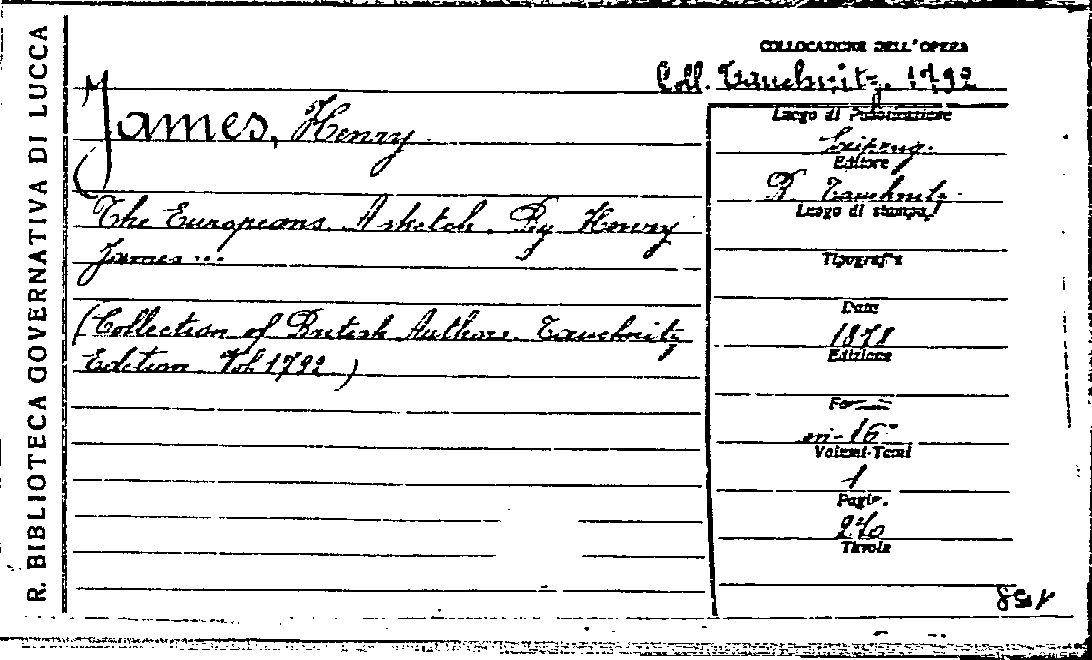 R. BIBLIOTECA GOVERNATIVA DI LUCCA
COLLOCAZIONE DELL'OPERA
Coll. Tauchnitz. 1792
James, Henry
The Europeans. A sketch. By Henry
James...
(Collection of British Authors. Tauchnitz
Edition. Vol. 1792.)
Luogo di Pubblicazione
Leipzig.
Editore
B. Tauchnitz.
Luogo di stampa
Tipografia
Data
1878
Edizione
in-16°
Volumi-Tomi
1
Pagin.
270
Tavole